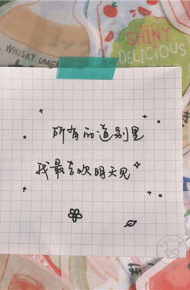 WHISKY UME
SHINY
DELICIOUS
所有的道别里
我最喜欢明天见